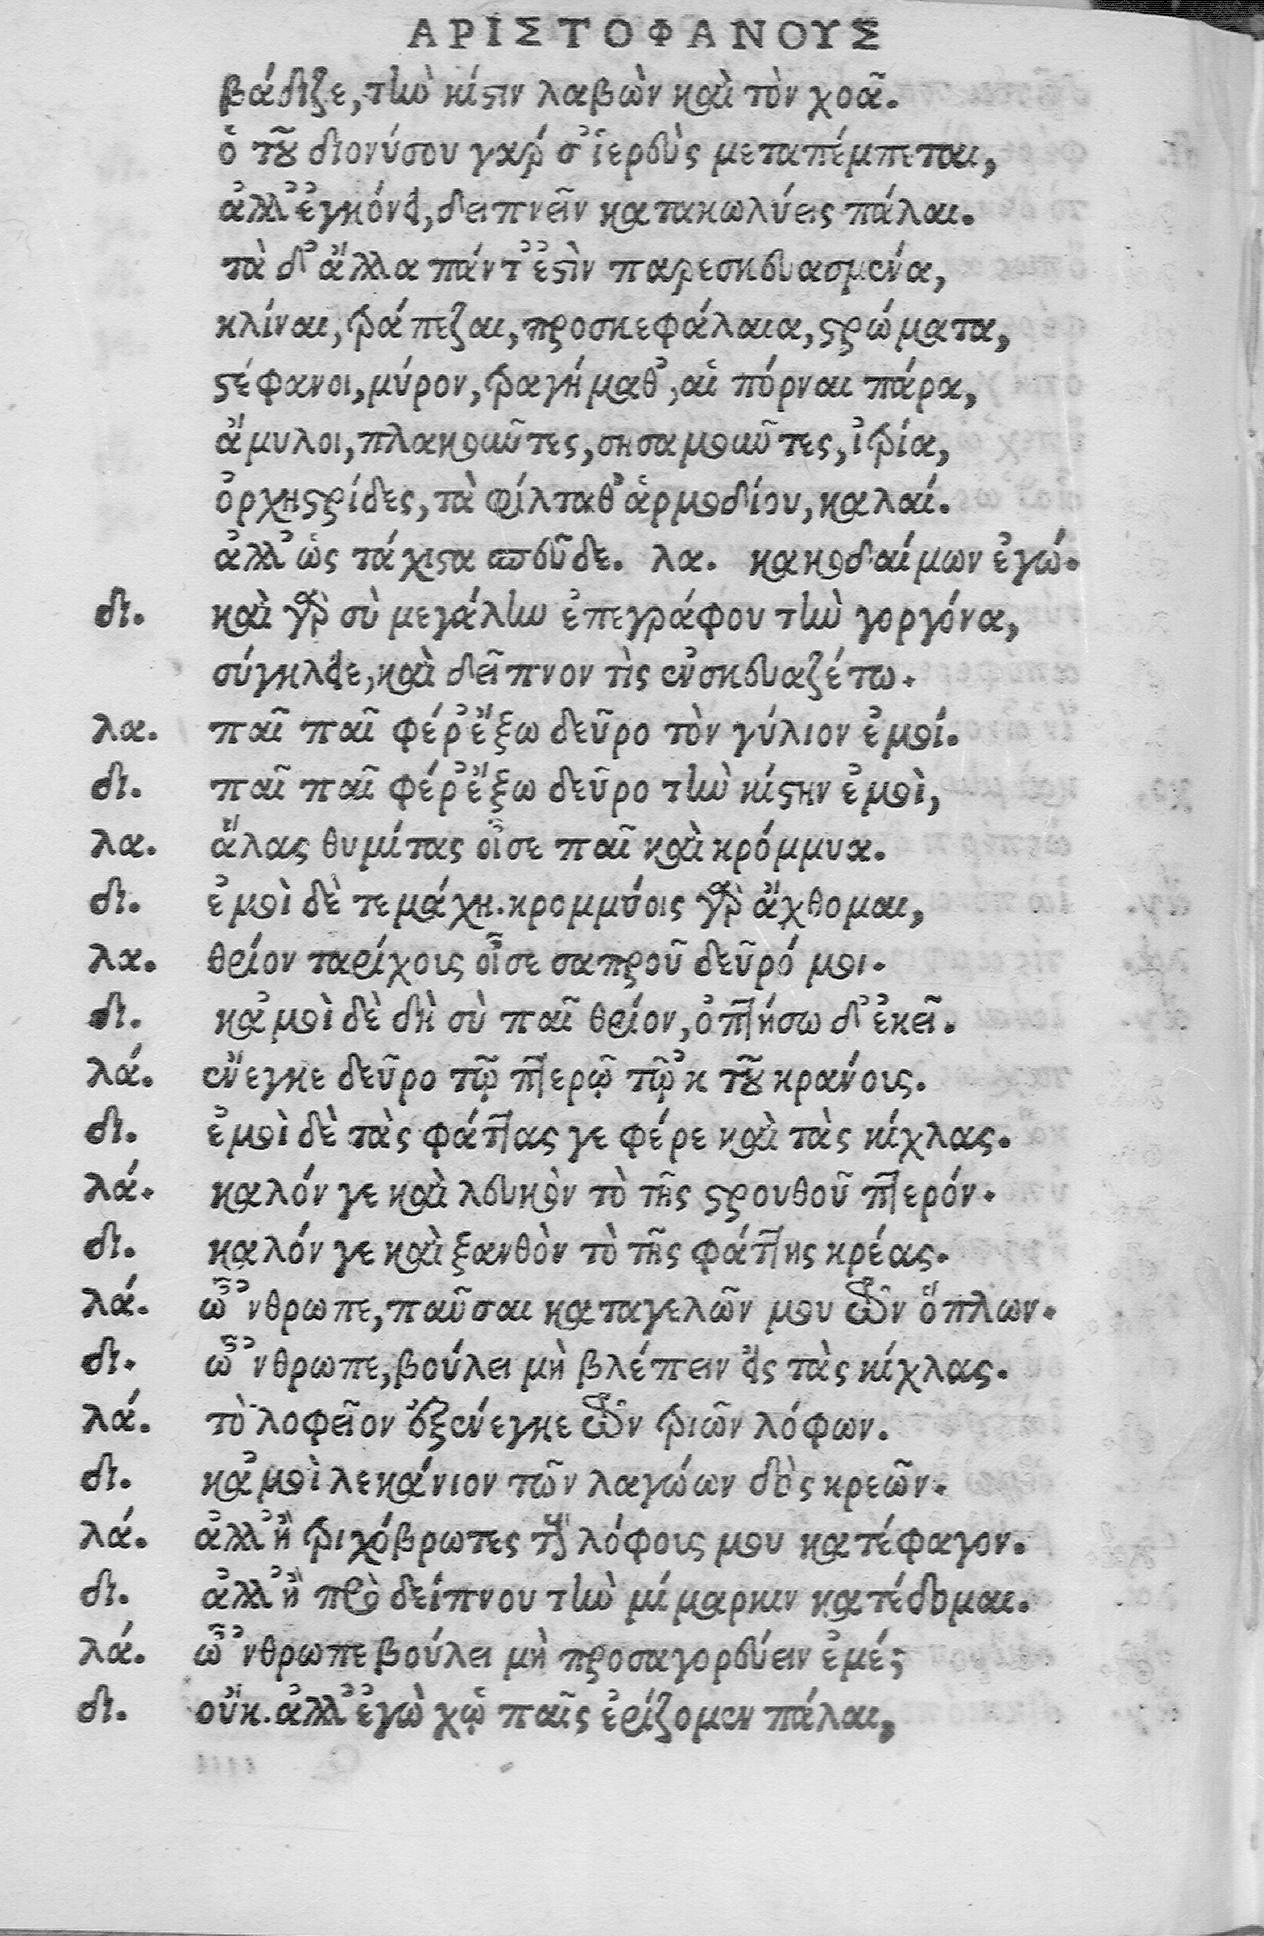 ΑΡΙΣΤΟΦΑΝΟΥΣ
βάδιζε, τὴν κίστιν λαβὼν καὶ τὸν χοᾶ.
ὁ τοῦ διονύσου γάρ σ᾿ ἱερεὺς μεταπέμπεται,
ἀλλ᾿ ἐγκόνει, δειπνεῖν κατακωλύεις πάλαι.
τὰ δ᾿ ἄλλα πάντ᾿ ἐστὶν παρεσκευασμένα,
κλίναι, τράπεζαι, προσκεφάλαια, στρώματα,
στέφανοι, μύρον, τραγήμαθ᾿, αἱ πόρναι πάρα,
ἄμυλοι, πλακοῦντες, σησαμοῦντες, ἰτρία,
ὀρχηστρίδες, τὰ φίλταθ᾿ ἁρμοδίου, καλαί.
ἀλλ᾿ ὡς τάχιστα σπεῦδε. λα. κακοδαίμων ἐγώ.
δι. καὶ γὰρ σὺ μεγάλην ἐπεγράφου τὴν γοργόνα,
σύγκλειε, καὶ δεῖπνον τὶς ἐνσκευαζέτω.
λα. παῖ παῖ φέρ᾿ ἔξω δεῦρο τὸν γύλιον ἐμοί.
δι. παῖ παῖ φέρ᾿ ἔξω δεῦρο τὴν κίστην ἐμοὶ,
λα. ἅλας θυμίτας οἶσε παῖ καὶ κρόμμυα.
δι. ἐμοὶ δὲ τεμάχη. κρομμύοις γὰρ ἄχθομαι,
λα. θρίον ταρίχους οἶσε σαπροῦ δεῦρό μοι.
δι. κἀμοὶ δὲ δὴ σὺ παῖ θρίον, ὀπτήσω δ᾿ ἐκεῖ.
λά. ἔνεγκε δεῦρο τῶ πτερῶ τῶ ᾿κ τοῦ κράνους.
δι. ἐμοὶ δὲ τὰς φάττας γε φέρε καὶ τὰς κίχλας.
λά. καλόν γε καὶ λευκὸν τὸ τῆς στρουθοῦ πτερόν.
δι. καλόν γε καὶ ξανθὸν τὸ τῆς φάττης κρέας.
λά. ὦ ᾿νθρωπε, παῦσαι καταγελῶν μου τῶν ὅπλων.
δι. ὦ ᾿νθρωπε, βούλει μὴ βλέπειν εἰς τὰς κίχλας.
λά. τὸ λοφεῖον ἐξένεγκε τῶν τριῶν λόφων.
δι. κἀμοὶ λεκάνιον τῶν λαγώων δὸς κρεῶν.
λά. ἀλλ᾿ ἢ τριχόβρωτες τοὺς λόφους μου κατέφαγον.
δι. ἀλλ᾿ ἢ πρὸ δείπνου τὴν μίμαρκιν κατέδομαι.
λά. ὦ ᾿νθρωπε βούλει μὴ προσαγορεύειν ἐμέ;
δι. οὔκ. ἀλλ᾿ ἐγὼ χὠ παῖς ἐρίζομεν πάλαι,